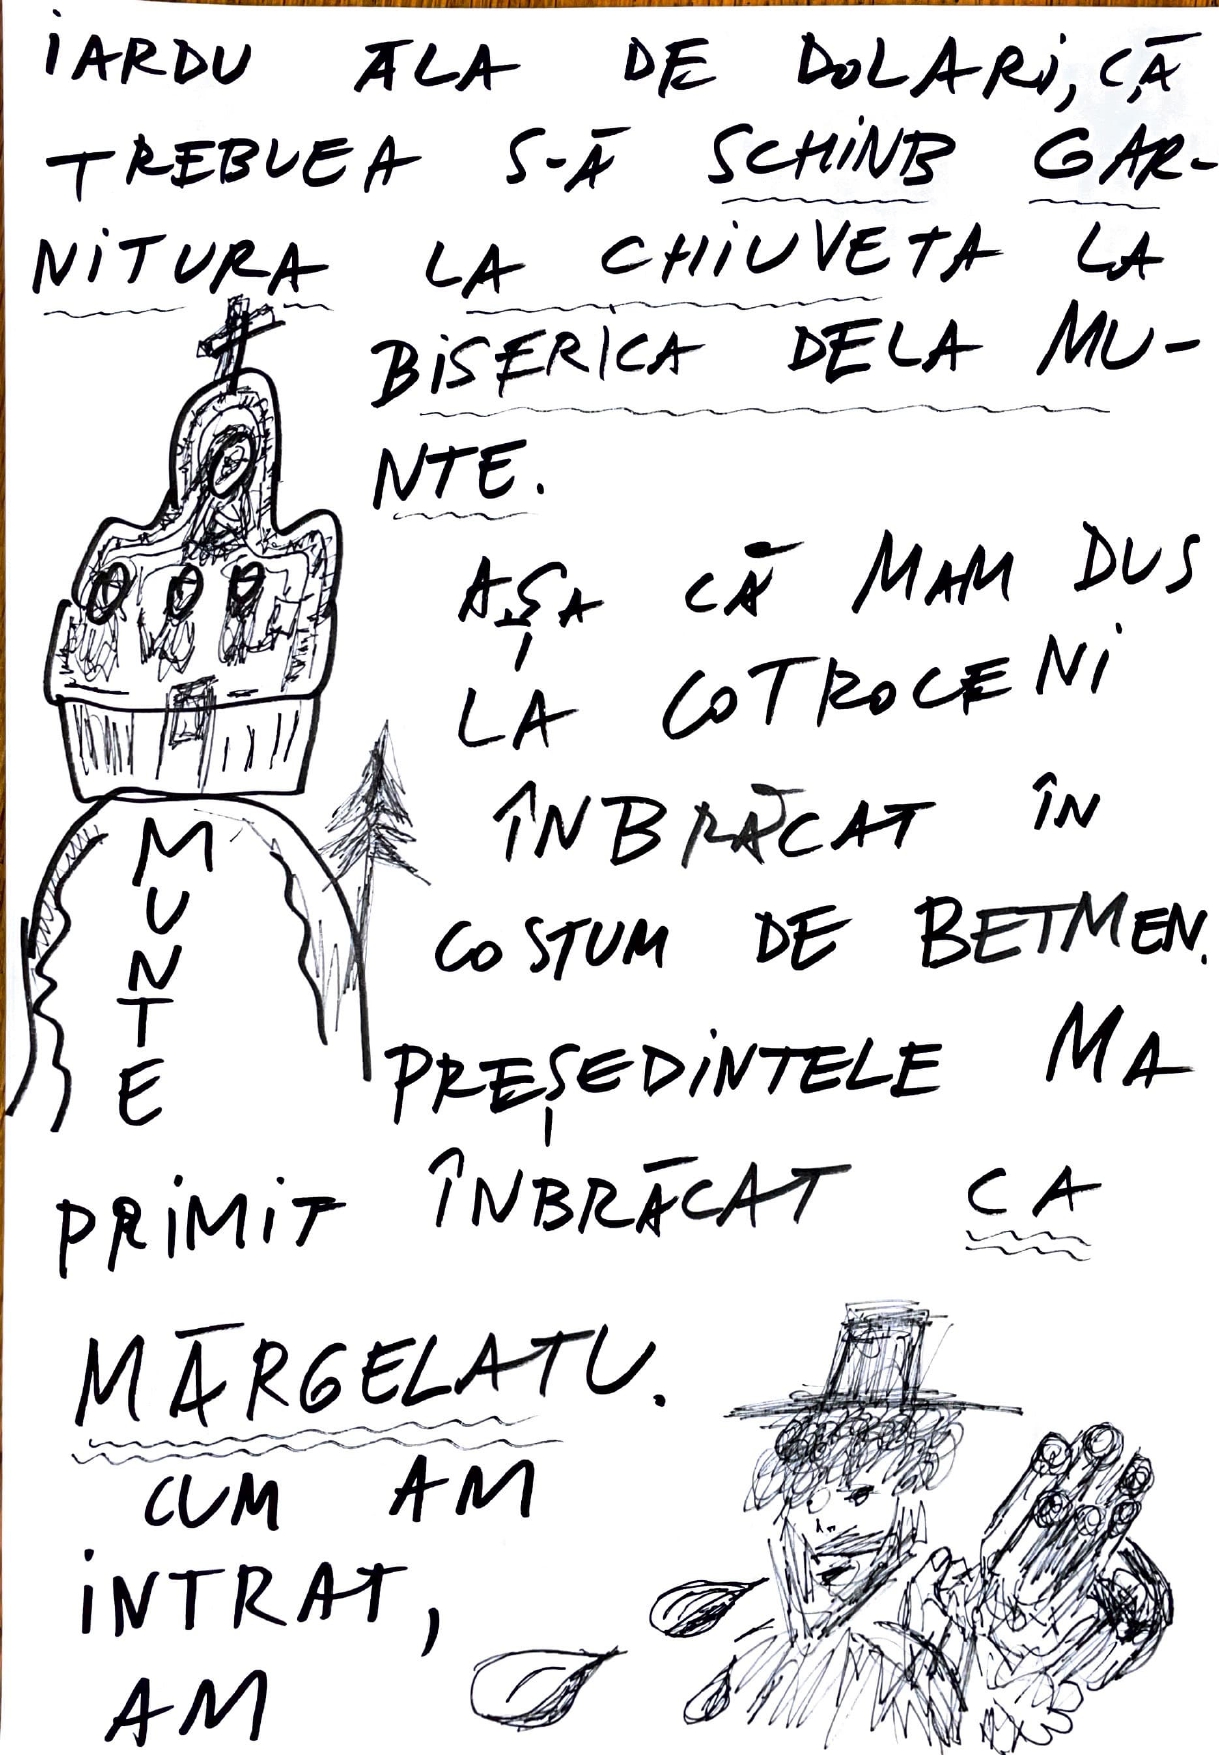 IARDU ĂLA DE DOLARI, CĂ
TREBUEA S-Ă SCHINB GAR-
NITURA LA CHIUVETA LA
BISERICA DELA MU-
NTE.
AȘA CĂ MAM DUS
LA COTROCENI
ÎNBRĂCAT ÎN
COSTUM DE BETMEN.
PREȘEDINTELE MA
PRIMIT ÎNBRĂCAT CA
MĂRGELATU.
CUM AM
INTRAT,
AM
MUNTE